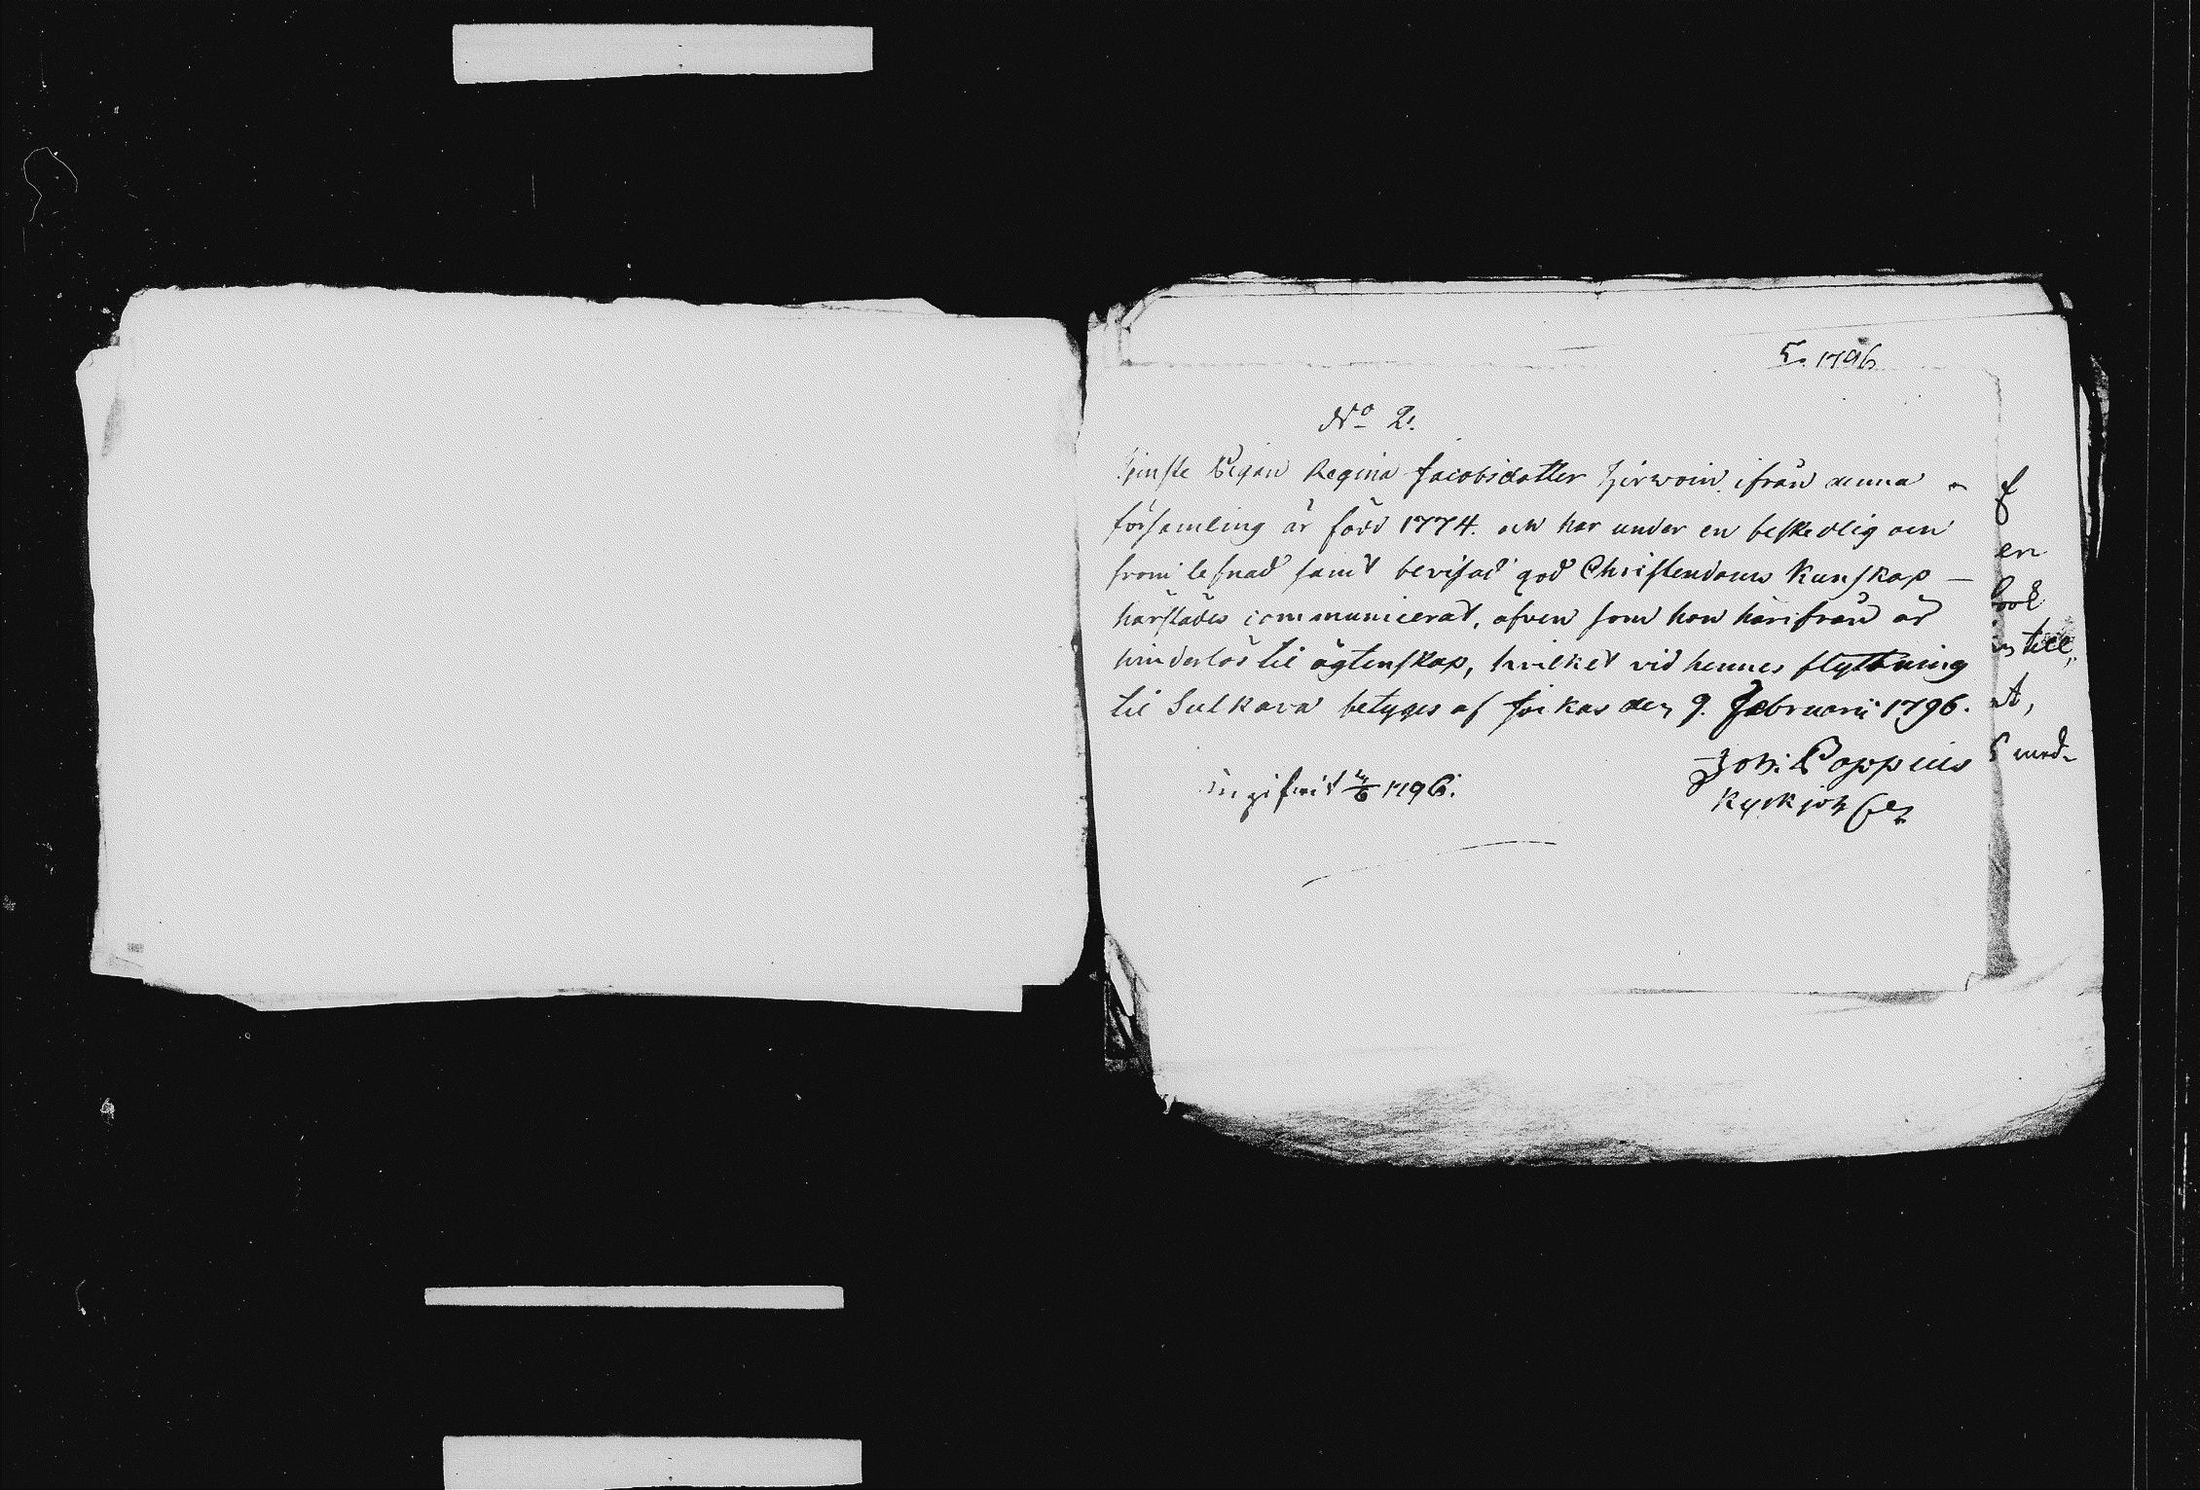 5. 1796
No 2.
Tjenste Pigan Regina Jacobsdotter Hirwoin ifrån denna
församling är född 1774. och har under en beskedlig och
from lefnad samt bevisad god Christendoms Kunskap —
härstädes communicerat, äfven som hon härifrån är
hinderlös til ägtenskap, hvilket vid hennes flyttning
til Sulkava betyges af Jockas den 9. Februarii 1796.
Joh: Poppius
Kyrkjoh
1796.
f
en
ook
till
t,
med-